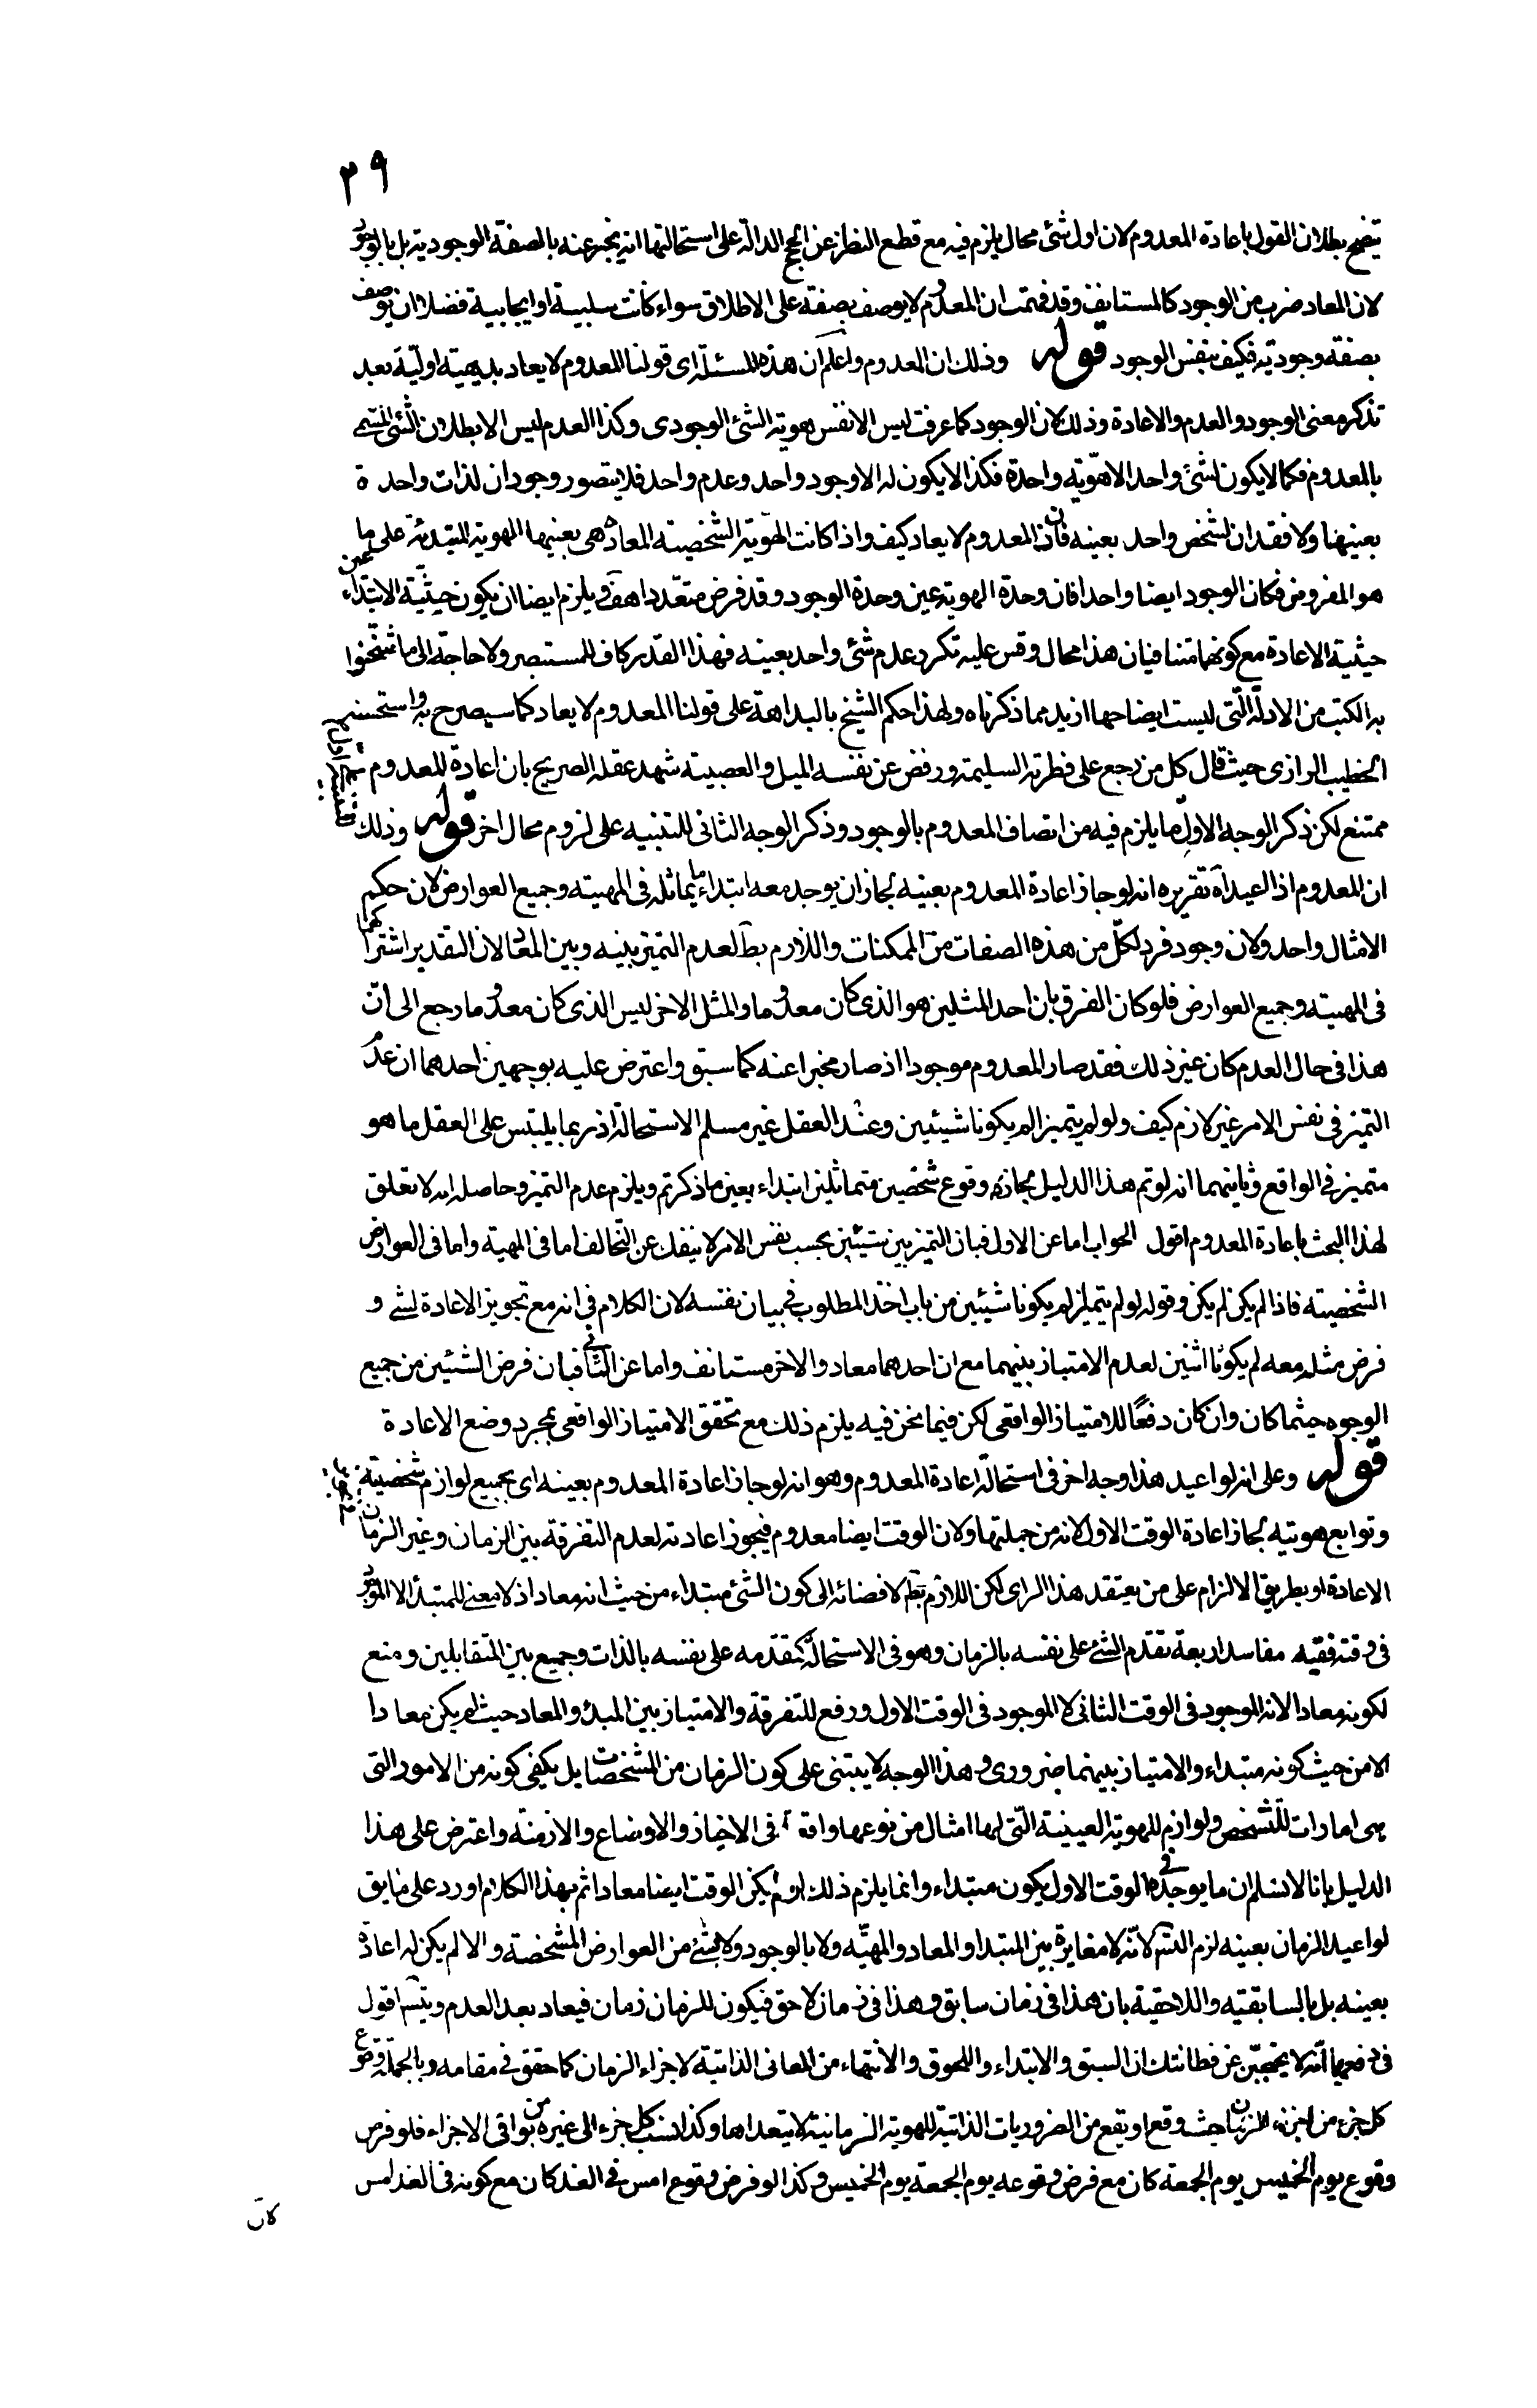 ٢٩
يتضح بطلان القول باعادة المعدوم لان اول شئ محال يلزم فيه مع قطع النظر عن الحجج الدالة على استحالتها انه يخبر عنه بالصفة الوجودية بل بالوجود
لان المعاد ضرب من الوجود كالمستانف وقد فهمت ان المعدوم لا يوصف بصفة على الاطلاق سواء كانت سلبية او ايجابية فضلا ان يوصف
بصفة وجودية فكيف بنفس الوجود قوله وذلك ان المعدوم واعلم ان هذه المسئلة اى قولنا المعدوم لا يعاد بديهية اولية بعد
تذكر معنى الوجود والعدم والاعادة وذلك لان الوجود كما عرفت ليس الا نفس هوية الشئ الوجودى وكذا العدم ليس الا بطلان الشئ المسمى
بالمعدوم فكما لا يكون لشئ واحد الا هوّية واحدة فكذا لا يكون له الا وجود واحد وعدم واحد فلا يتصور وجودان لذات واحدة
بعينها ولا فقدان لشخص واحد بعينه فاذن المعدوم لا يعاد كيف واذا كانت الهوّية الشخصية المعادة هى بعينها الهوية المبتدئة على ما
هو المفروض فكان الوجود ايضا واحدا فان وحدة الهوية عين وحدة الوجود وقد فرض متعّددا هف ويلزم ايضا ان يكون حيثيّة الابتداء عين
حيثية الاعادة مع كونهما متنافيان هذا محال وقس عليه تكرر عدم شئ واحد بعينه فهذا القدر كاف للمستبصر ولا حاجة الى ما شحّنوا
به الكتب من الادلة التى ليست ايضاحها ازيد مما ذكرناه ولهذا حكم الشيخ بالبداهة على قولنا المعدوم لا يعاد كما سيصرح به واستحسنه
الخطيب الرازى حيث قال كل من رجع على فطرته السليمة ورفض عن نفسه الميل والعصبية شهد عقله الصريح بان اعادة المعدوم
ممتنع لكن ذكر الوجه الاوّل ما يلزم فيه من اتصاف المعدوم بالوجود وذكر الوجه الثانى للتنبيه على لزوم محال اخر قوله وذلك
ان المعدوم اذا اعيد آه تقريره انه لو جاز اعادة المعدوم بعينه لجاز ان يوجد معه ابتداء ما يماثله فى المهية وجميع العوارض لان حكم
الامثال واحد ولان وجود فرد لكلّ من هذه الصفات من الممكنات واللازم بط لعدم التميز بينه وبين المعاد لان التقدير اشتراكهما
فى المهية وجميع العوارض فلو كان الفرق بان احد المثلين هو الذى كان معدوما والمثل الاخر ليس الذى كان معدوما رجع الى انّ
هذا فى حال العدم كان غير ذلك فقد صار المعدوم موجودا اذ صار مخبرا عنه كما سبق واعترض عليه بوجهين احدهما ان عدم
التميز فى نفس الامر غير لازم كيف ولو لم يتميزا لم يكونا شيئين وعند العقل غير مسلم الاستحالة اذ ربما يلتبس على العقل ما هو
متميز فى الواقع وثانيهما انه لو تم هذا الدليل لجاز وقوع شخصين متماثلين ابتداء بعين ما ذكرتم ويلزم عدم التميز وحاصله انه لا تعلق
لهذا البحث باعادة المعدوم اقول الجواب اما عن الاول فبان التميز بين شيئين بحسب نفس الامر لا ينفك عن التّخالف اما فى المهية واما فى العوارض
الشخصية فاذا لم يكن لم يكن وقوله لو لم يتميزا لم يكونا شيئين من باب اخذ المطلوب فى بيان نفسه لان الكلام فى انه مع تجويز الاعادة لشئ و
فرض مثله معه لم يكونا اثنين لعدم الامتياز بينهما مع ان احدهما معاد والاخر مستانف واما عن الثانى فبان فرض الشيئين من جميع
الوجوه حيثما كان وان كان دفعًا للامتياز الواقعى لكن فيما نحن فيه يلزم ذلك مع تحقق الامتياز الواقعى بمجرد وضع الاعادة
قوله وعلى انه لو اعيد هذا وجه اخر فى استحالة اعادة المعدوم وهو انه لو جاز اعادة المعدوم بعينه اى بجميع لوازم شخصيته
وتوابع هويته لجاز اعادة الوقت الاول لانه من جملتها ولان الوقت ايضا معدوم فيجوز اعادته لعدم التفرقة بين الزمان وغير الزمان
الاعادة او بطريق الالزام على من يعتقد هذا الراى لكن اللازم بط لافضائه الى كون الشئ مبتداء من حيث انه معاد اذ لا معنى للمبتدأ الا الموجود
فى وقته ففيه مفاسد اربعة تقدم الشئ على نفسه بالزمان وهو فى الاستحالة كتقدّمه على نفسه بالذات وجميع بين المتقابلين ومنع
لكونه معادا لانه الموجود فى الوقت الثانى لا الموجود فى الوقت الاول ورفع للتفرقة والامتياز بين المبدئ والمعاد حيث لم يكن معادا
الا من حيث كونه مبتداء والامتياز بينهما ضرورى وهذا الوجه لا يبتنى على كون الزمان من المشخصات بل يكفى كونه من الامور التى
هى امارات للتشخص ولوازم للهوية العينية التّى لها امثال من نوعها واقعة فى الاحياز والاوضاع والازمنة واعترض على هذا
الدليل بانا لا نسلم ان ما يوجد فى الوقت الاول يكون مبتداء وانما يلزم ذلك لو لم يكن الوقت ايضا معادا ثم بهذا الكلام اورد على ما يق
لو اعيد الزمان بعينه لزم التسّ لانّه لا مغايرة بين المبتدا والمعاد والمهيّه ولا بالوجود ولا بشئ من العوارض المشخصة والا لم يكن له اعادة
بعينه بل بالسابقيه واللاحقية بان هذا فى زمان سابق وهذا فى زمان لاحق فيكون للزمان زمان فيعاد بعد العدم ويتسّ اقول
فى دفعهما انّه لا يخفينّ عن فطانتك ان السبق والابتداء واللحوق والانتهاء من المعانى الذاتية لاجزاء الزمان كما حقق فى مقامه وبالجملة وقوع
كل جزء من اجزاء الزمان حيث وقع او يقع من الضروريات الذاتية للهوية الزمانية لا يتعداها وكذا نسب كل جزء الى غيره من بواقى الاجزاء فلو فرض
وقوع يوم الخميس يوم الجمعة كان مع فرض وقوعه يوم الجمعة يوم الخميس وكذا لو فرض وقوع امس فى الغد كان مع كونه فى الغد امس
لان